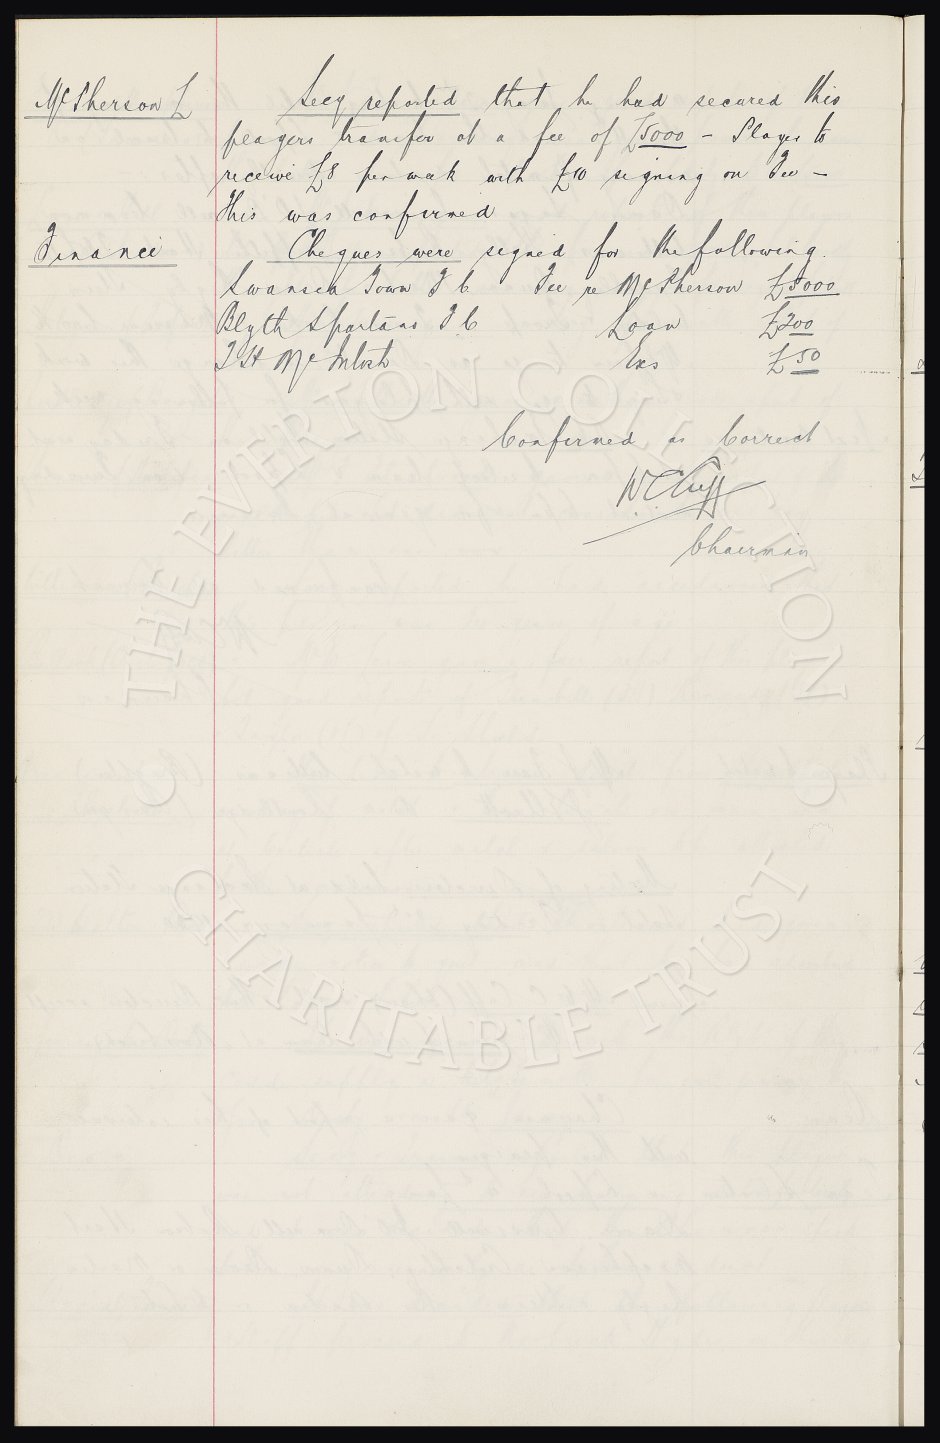 McPherson L
Secy reported that he had secured this
players transfer at a fee of £5000 - Player to
receive £8 per week with £10 signing on Fee -
This was confirmed
Finance
Cheques were signed for the following.
Swansea Town F C Fee re McPherson £5000
Blyth Spartans F C Loan £200
T H McIntosh Exs £50
Confirmed as Correct
W.C. Cuff
Chairman
THE EVERTON COLLECTION
CHARITABLE TRUST